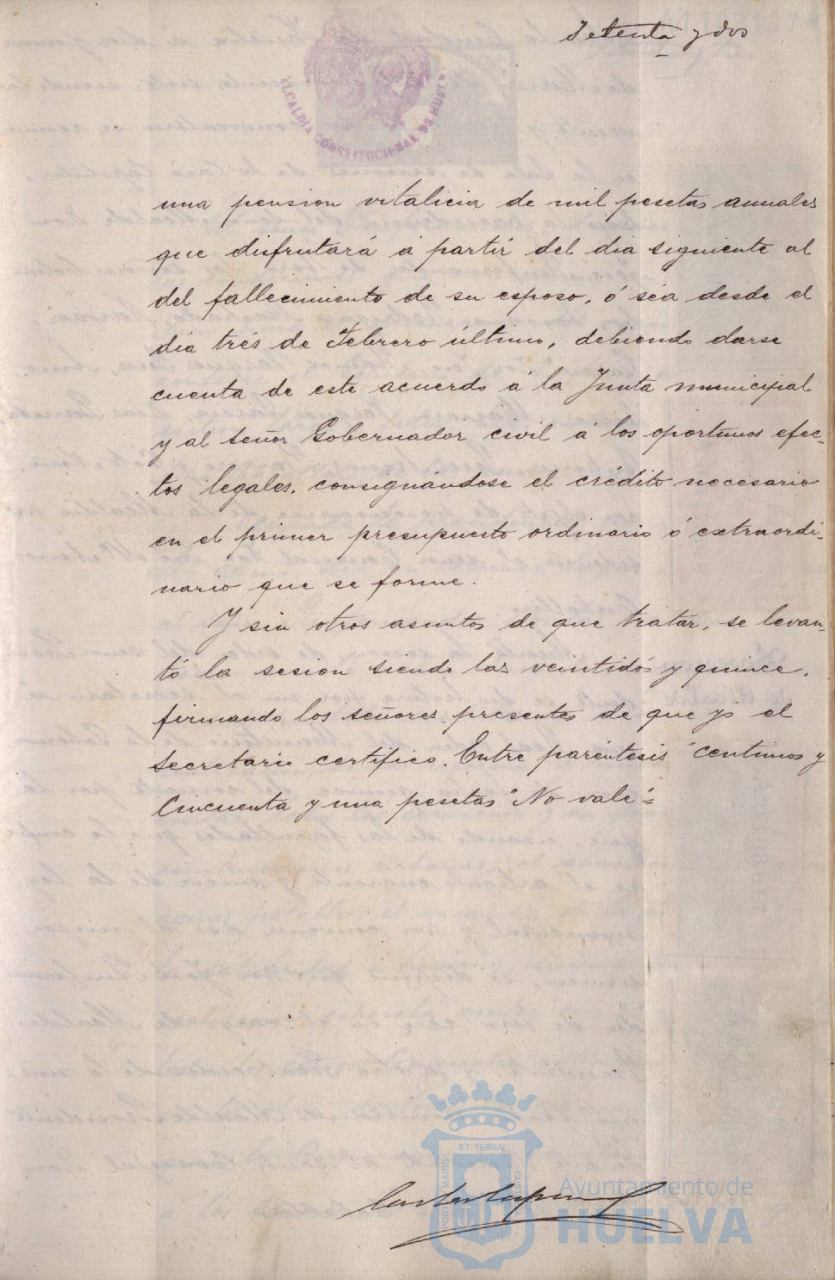 Setenta y dos
ALCALDÍA CONSTITUCIONAL DE HUELVA
una pension vitalicia de mil pesetas anuales
que disfrutará á partir del dia siguiente al
del fallecimiento de su esposo, ó séa desde el
dia trés de Febrero último, debiendo darse
cuenta de este acuerdo á la Junta municipal
y al señor Gobernador civil á los oportunos efec-
tos legales, consignándose el crédito necesario
en el primer presupuesto ordinario ó extraordi-
nario que se forme.
Y sin otros asuntos de que tratar, se levan-
tó la sesion siendo las veintidós y quince,
firmando los señores presentes de que yo el
Secretario certifico. Entre paréntesis "centimos y
Cincuenta y una pesetas" No vale =
ET TERRÆ
Ayuntamiento de
HUELVA